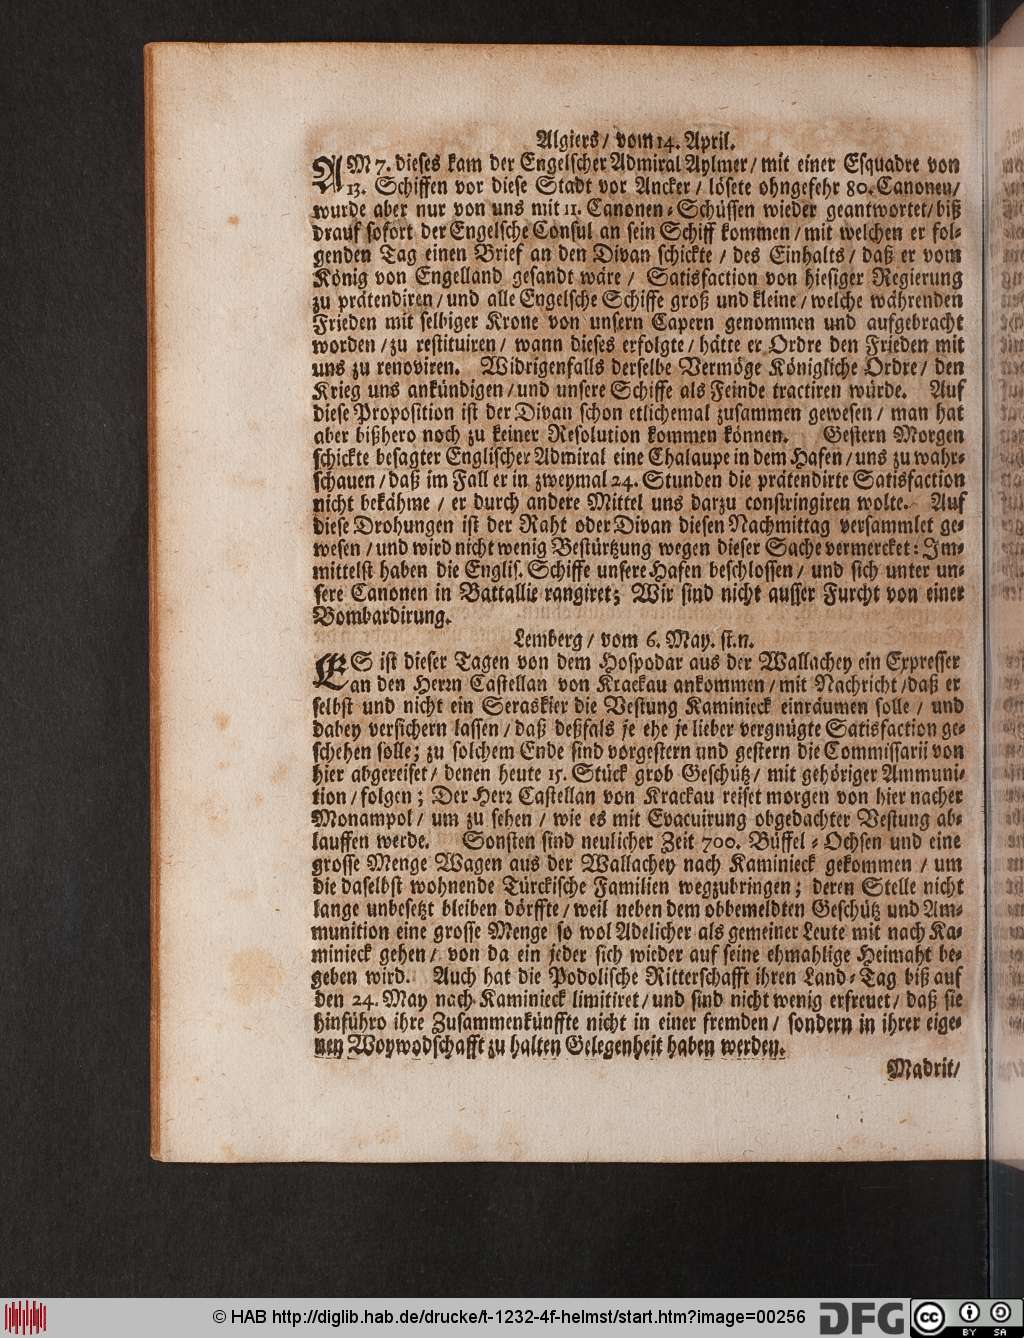 Algiers/ vom 14. April.
AM 7. dieses kam der Engelscher Admiral Aylmer/ mit einer Esquadre von
13. Schiffen vor diese Stadt vor Ancker/ lösete ohngefehr 80. Canonen/
wurde aber nur von uns mit 11. Canonen-Schüssen wieder geantwortet/ biß
drauf sofort der Engelsche Consul an sein Schiff kommen/ mit welchen er fol-
genden Tag einen Brief an den Divan schickte/ des Einhalts/ daß er vom
König von Engelland gesandt wäre/ Satisfaction von hiesiger Regierung
zu prätendiren/ und alle Engelsche Schiffe groß und kleine/ welche währenden
Frieden mit selbiger Krone von unsern Capern genommen und aufgebracht
worden/ zu restituiren/ wann dieses erfolgte/ hätte er Ordre den Frieden mit
uns zu renoviren. Widrigenfalls derselbe Vermöge Königliche Ordre/ den
Krieg uns ankündigen/ und unsere Schiffe als Feinde tractiren würde. Auf
diese Proposition ist der Divan schon etlichemal zusammen gewesen/ man hat
aber bißhero noch zu keiner Resolution kommen können. Gestern Morgen
schickte besagter Englischer Admiral eine Chalaupe in dem Hafen/ uns zu wahr-
schauen/ daß im Fall er in zweymal 24. Stunden die prätendirte Satisfaction
nicht bekähme/ er durch andere Mittel uns darzu constringiren wolte. Auf
diese Drohungen ist der Raht oder Divan diesen Nachmittag versammlet ge-
wesen/ und wird nicht wenig Bestürtzung wegen dieser Sache vermercket: Im-
mittelst haben die Englis. Schiffe unsere Hafen beschlossen/ und sich unter un-
sere Canonen in Battallie rangiret; Wir sind nicht ausser Furcht von einer
Bombardirung.
Lemberg/ vom 6. May. st. n.
ES ist dieser Tagen von dem Hospodar aus der Wallachey ein Expresser
an den Herrn Castellan von Krackau ankommen/ mit Nachricht/ daß er
selbst und nicht ein Seraskier die Vestung Kaminieck einräumen solle/ und
dabey versichern lassen/ daß deßfals je ehe je lieber vergnügte Satisfaction ge-
schehen solle; zu solchem Ende sind vorgestern und gestern die Commissarii von
hier abgereiset/ denen heute 15. Stück grob Geschütz/ mit gehöriger Ammuni-
tion/ folgen; Der Herr Castellan von Krackau reiset morgen von hier nacher
Monampol/ um zu sehen/ wie es mit Evacuirung obgedachter Vestung ab-
lauffen werde. Sonsten sind neulicher Zeit 700. Büffel-Ochsen und eine
grosse Menge Wagen aus der Wallachey nach Kaminieck gekommen/ um
die daselbst wohnende Türckische Familien wegzubringen; deren Stelle nicht
lange unbesetzt bleiben dörffte/ weil neben dem obbemeldten Geschütz und Am-
munition eine grosse Menge so wol Adelicher als gemeiner Leute mit nach Ka-
minieck gehen/ von da ein jeder sich wieder auf seine ehmahlige Heimaht be-
geben wird. Auch hat die Podolische Ritterschafft ihren Land-Tag biß auf
den 24. May nach Kaminieck limitiret/ und sind nicht wenig erfreuet/ daß sie
hinführo ihre Zusammenkünffte nicht in einer fremden/ sondern in ihrer eige-
nen Woywodschafft zu halten Gelegenheit haben werden.
Madrit/
© HAB http://diglib.hab.de/drucke/t-1232-4f-helmst/start.htm?image=00256
DFG
cc
BY SA